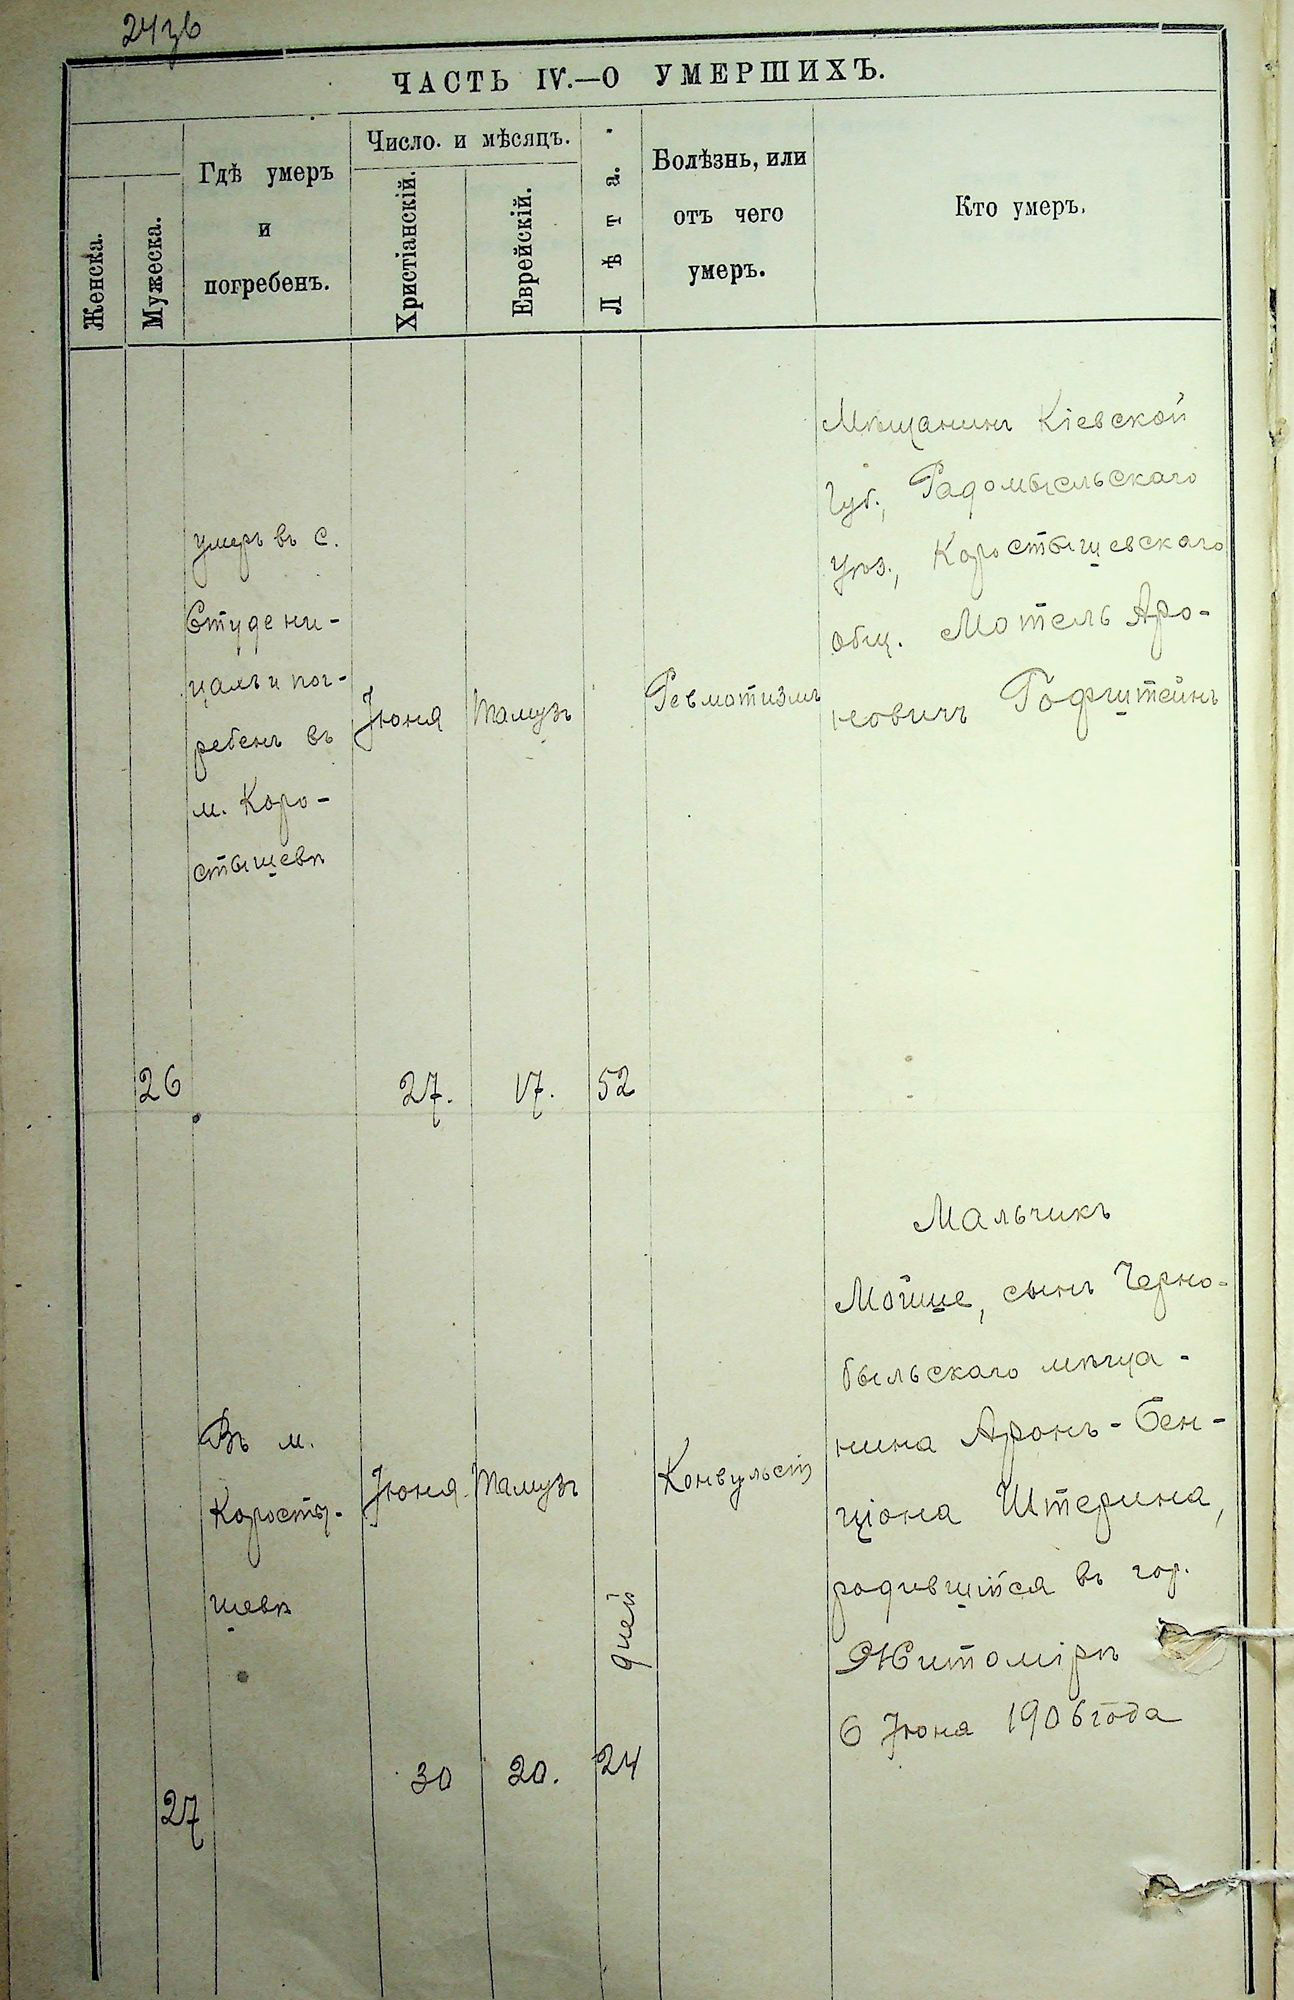 ЧАСТЬ IV.—О УМЕРШИХЪ.
Женска.
Мужеска.
Гдѣ умеръ
и
погребенъ.
Число. и мѣсяцъ.
Христіанскій.
Еврейскій.
Лѣта.
Болѣзнь, или
отъ чего
умеръ.
Кто умеръ.
26
умеръ въ с.
Студени-
цахъ и пог-
ребенъ въ
м. Коро-
стышевѣ
Іюня
27.
Тамузъ
17.
52
Ревмотизмъ
Мѣщанинъ Кіевской
Губ., Радомысльскаго
уѣз., Коростышевскаго
общ. Мотель Аро-
новичъ Гофштейнъ
27
Въ м.
Коросты-
шевѣ
Іюня
30
Тамузъ
20.
дней
24
Конвульсіи
Мальчикъ
Мойше, сынъ Черно-
быльскаго мѣща-
нина Аронъ-Бен-
ціона Штерина,
родившійся въ гор.
Житомірѣ
6 Іюня 1906 года